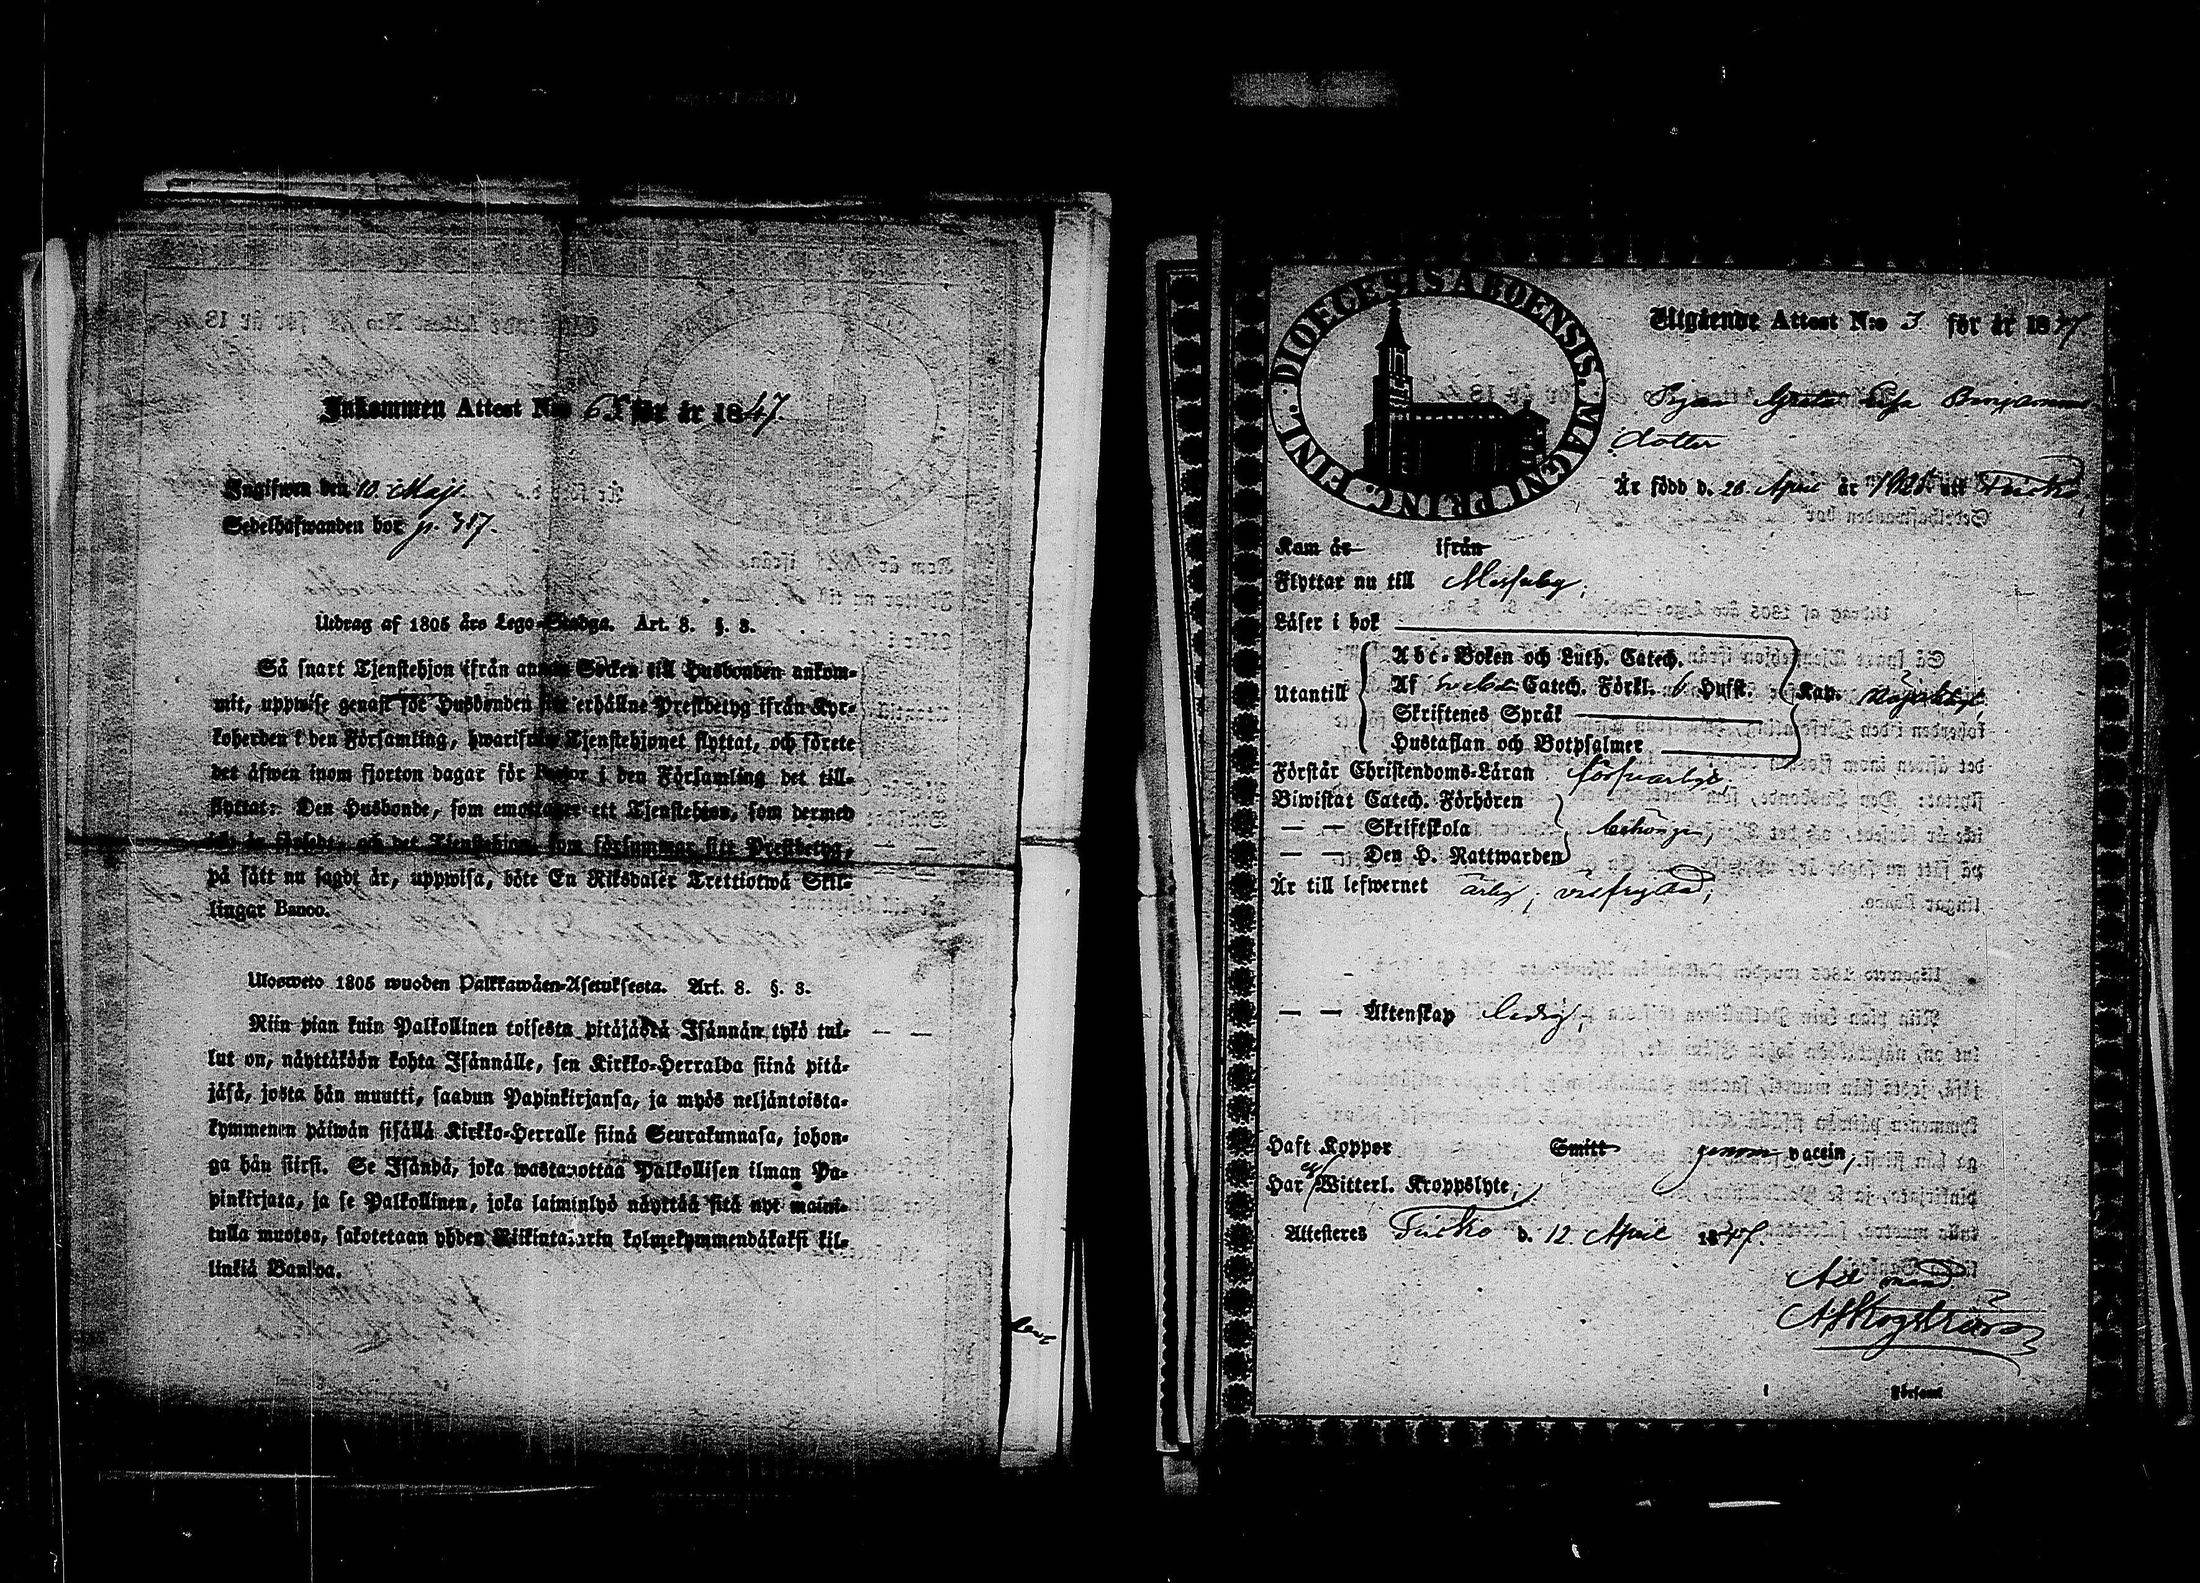 Inkommen Attest N:o 65 för år 1847.
Ingifwen den 10 Maji
Sedelhafwanden bor p. 387.
Utdrag af 1805 års Lego-Stadga. Art. 8. §. 8.
Så snart Tjenstehjon ifrån annan Socken till Husbonden ankom-
mit, uppwise genast för Husbonden sitt erhållne Prestbetyg ifrån Kyr-
koherden i den Församling, hwarifrån Tjenstehjonet flyttat, och förete
det äfwen inom fjorton dagar för Pastor i den Församling det till-
flyttat: Den Husbonde, som emottager ett Tjenstehjon, som dermed
icke är försedt, och det Tjenstehjon, som försummar sitt Prestbetyg,
på sätt nu sagdt är, uppwisa, böte En Riksdaler Trettiotwå Skil-
lingar Banco.
Ulosweto 1805 wuoden Palkkawäen-Asetuksesta. Art. 8. §. 8.
Niin pian kuin Palkollinen toisesta pitäjästä Isännän tykö tul-
lut on, näyttäköön kohta Isännälle, sen Kirkko-Herralda siinä pitä-
jäsä, josta hän muutti, saadun Papinkirjansa, ja myös neljäntoista-
kymmenen päiwän sisällä Kirkko-Herralle siinä Seurakunnasa, johon-
ga hän siirsi. Se Isändä, joka wastaanottaa Palkollisen ilman Pa-
pinkirjata, ja se Palkollinen, joka laiminlyö näyttää sitä nyt maini-
tulla muotoa, sakotetaan yhden Riikintalerin kolmekymmendäkaksi kil-
linkiä Bankoa.
DIOECESIS ABOENSIS. MAGNI PRINC. FINL.
Utgående Attest N:o 3 för år 1847
Pigan Greta Lisa Benjamins
dotter
Är född d. 26 April år 182 uti Tursko
Kom år ifrån
Flyttar nu till
Läser i bok
Utantill
Abc-Boken och Luth. Catech.
Af Catech. Förkl. 6 Hufst. Kap.
Skriftenes Språk
Hustaflan och Botpsalmer
Förstår Christendoms-Läran försvarligt.
Biwistat Catech. Förhören
— — Skriftskola behörigen,
— — Den H. Nattwarden
Är till lefwernet ärlig, välfrejdad,
— — Äktenskap ledig,
Haft Koppor Smitt genom vaccin,
Har ej Witterl. Kroppslyte,
Attesteres d. 12 April 1847.
Församl